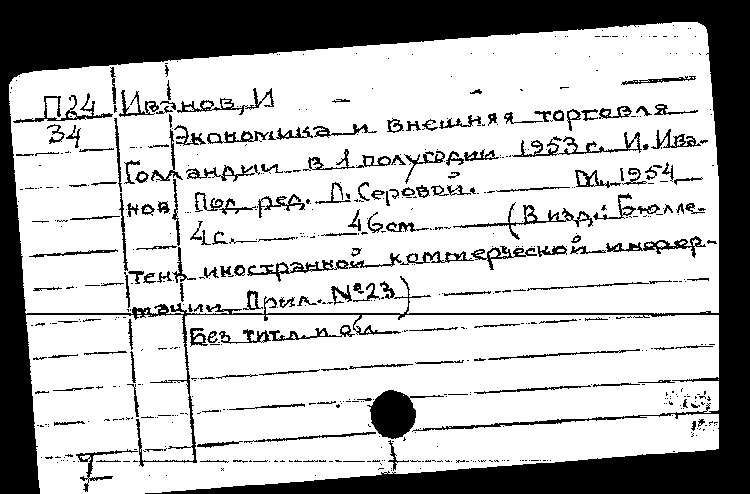 П24 Иванов, И
34 Экономика и внешняя торговля
Голландии в 1 полугодии 1953 г. И. Ива-
нов, Под ред. Л. Серовой. М., 1954
4 с. 46 см (В изд.: Бюлле-
тень иностранной коммерческой инфор-
мации. Прил. №23)
Без тит. л. и обл.
7